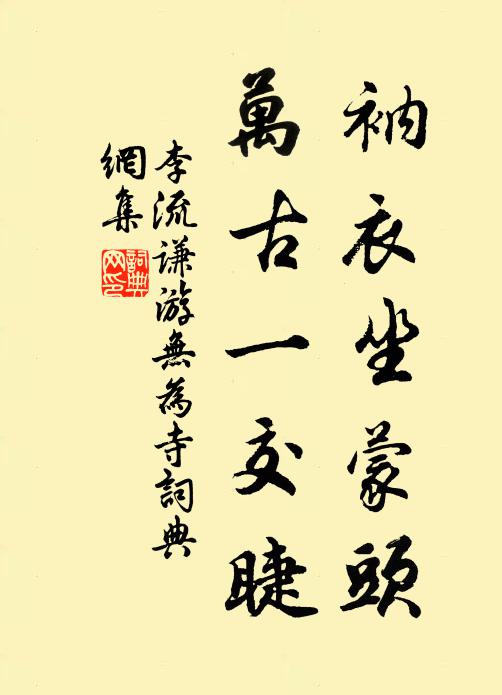 衲衣坐蒙頭
萬古一交睫
李流谦游無為寺詞典
網集
詞典网印